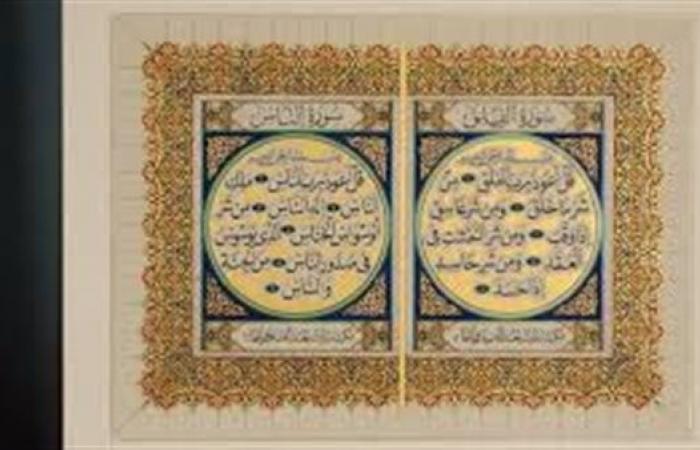 سورة الفلق
بسم الله الرحمن الرحيم
قل أعوذ برب الفلق من
شر ما خلق ومن شر غاسق
إذا وقب ومن شر النفثت في
العقد ومن شر حاسد
إذا حسد
سورة الناس
بسم الله الرحمن الرحيم
قل أعوذ برب الناس ملك
الناس إله الناس من شر
الوسواس الخناس الذي يوسوس
في صدور الناس من الجنة
والناس